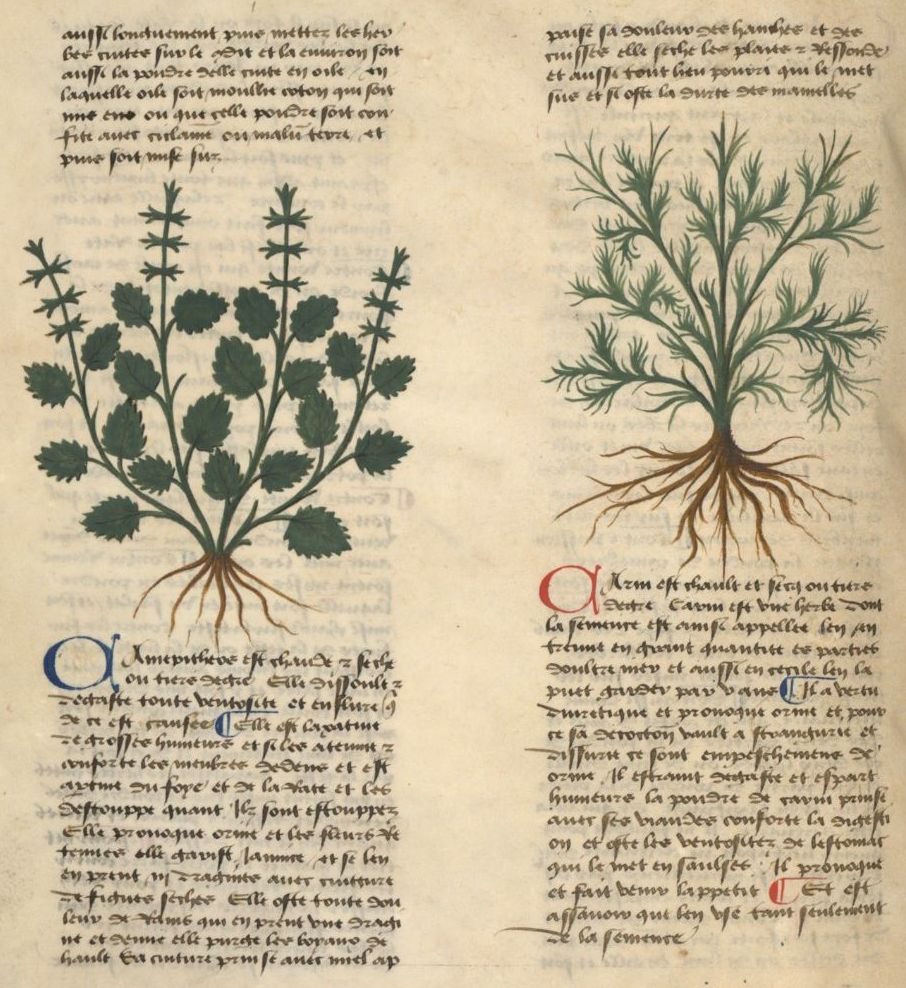 aussi longuement puis mettez les her
bes cuites sur le dit et la environ soit
aussi la poudre delle cuite en oile / en
laquelle oile soit moullie coton qui soit
mis ens ou que celle poudre soit con
fite auec ciclame ou malū terre / et
puis soit mise sur
Camepitheos est chaude ⁊ seche
ou tiers degre Elle dissoult ⁊
degaste toute ventosite et enflure q̄
de ce est causee ¶ Elle est laxatiue
de grosses humeurs et si les atenue ⁊
conforte les menbres dedens et est
du foye et de la rate et les
destouppe quant ilz sont estouppez
Elle prouoque orine et les fleurs re
tenues elle garist / et se len
en prent .iij dragmes auec cuitture
de figues seches Elle oste toute dou
leur de Rains qui en prent vne drag
me et demie elle purge les boyaux de
hault La cuiture prinse auec miel ap
paise sa douleur des hanches et des
cuisses elle seche les plaies ⁊ Ressoude
et aussi tout lieu pourri qui le met
sus et si oste la durte des mamelles
Carui est chault et secq ou tiers
degre Carui est vne herbe dont
la semence est ainsi appellee len en
treuue en grant quantite es parties
doultre mer et aussi en cecile len la
puet garder par v ans ¶ Il a vertu
diuretique et prouoque orine et pour
ce sa decoction vault a strangurie et
dissurie ce sont empeschemens de
orine / Il estraint degaste et espart
humeurs la poudre de carui prinse
auec ses viandes conforte la digesti
on et oste les ventositez de lestomac
qui le met en saulses Il prouoque
et fait venir lappetit ¶ Et est
assauoir que len vse tant seulement
de la semence